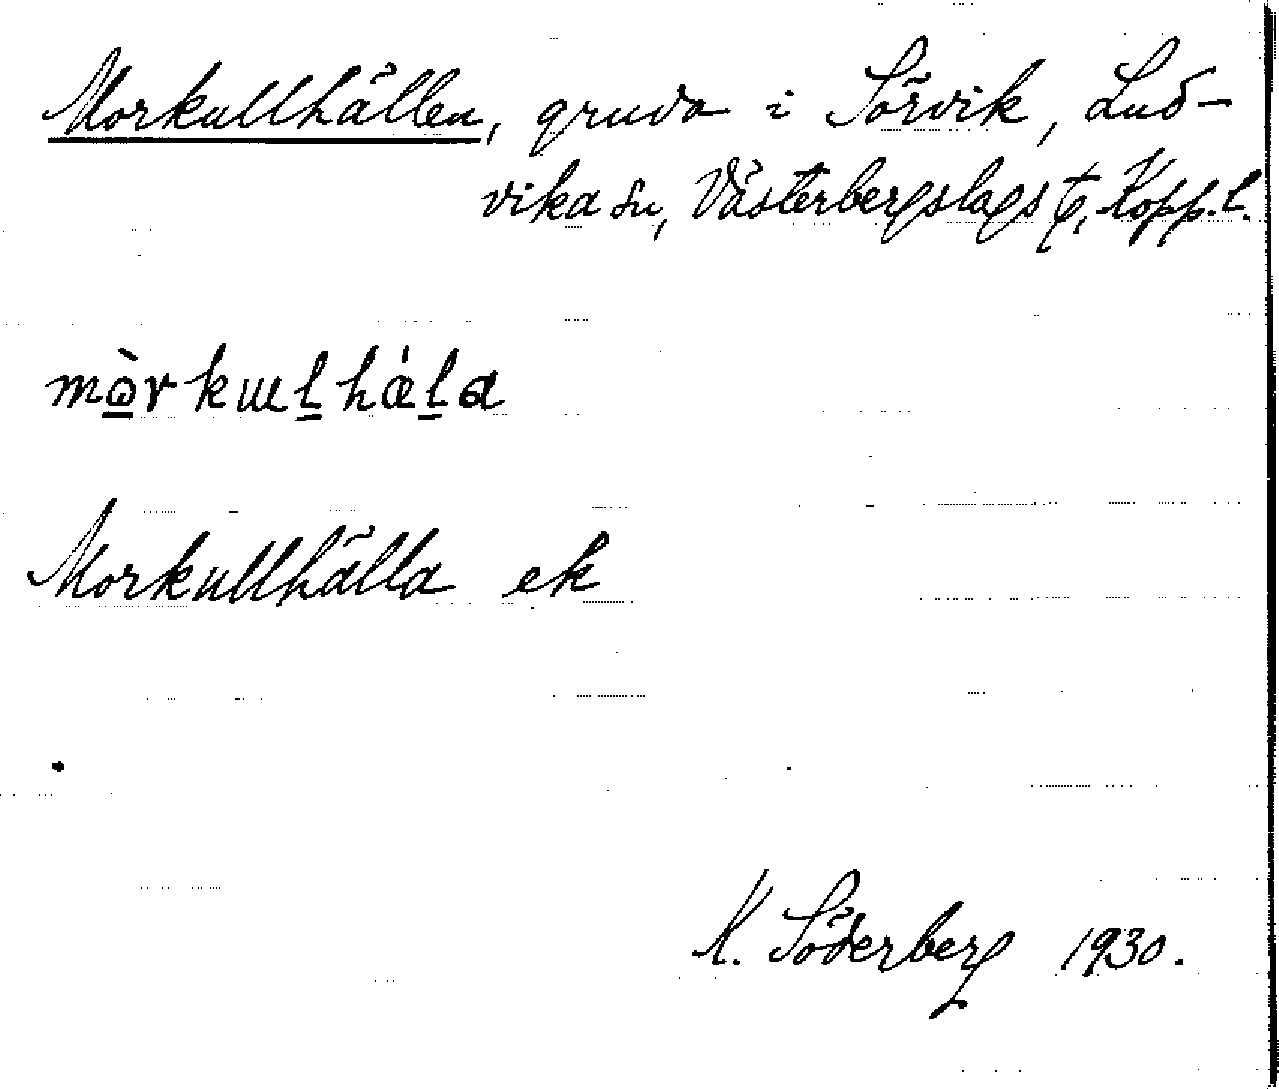 Morkullhällen, gruva i Sörvik, Lud-
vika sn, Västerbergslags t, Kopp.l.
mɷ̀rkɯlhǽla
Morkullhälla ek
K. Söderberg 1930.